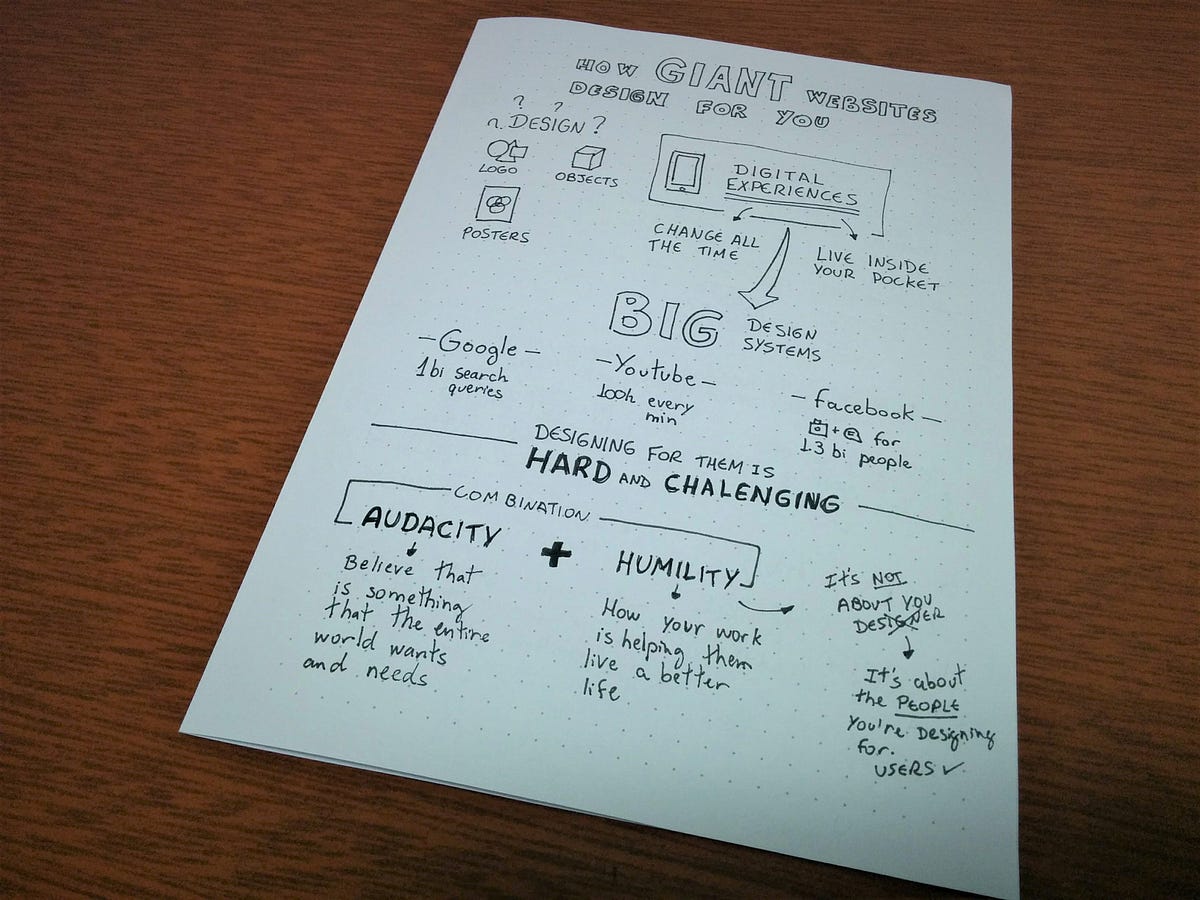 HOW GIANT WEBSITES
DESIGN FOR YOU
? ?
? DESIGN?
LOGO
OBJECTS
POSTERS
DIGITAL
EXPERIENCES
CHANGE ALL
THE TIME
LIVE INSIDE
YOUR POCKET
BIG DESIGN
SYSTEMS
-Google-
1bi search
queries
-Youtube-
100h every
min
-facebook-
+ for
1.3 bi people
DESIGNING FOR THEM IS
HARD AND CHALENGING
COMBINATION
AUDACITY
+
HUMILITY
Believe that
is something
that the entire
world wants
and needs
How your work
is helping them
live a better
life
It's NOT
ABOUT YOU
DESIGNER
It's about
the PEOPLE
you're Designing
for.
USERS ✓